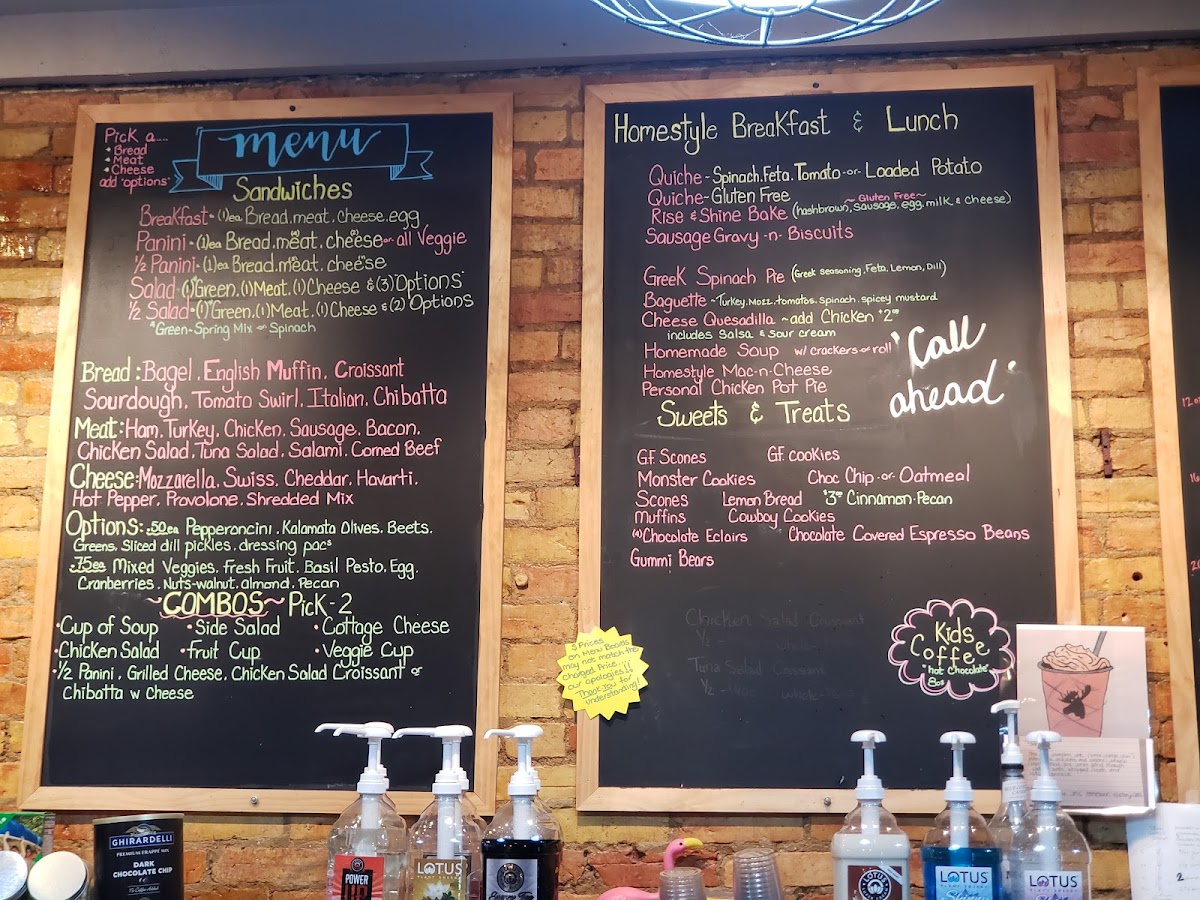 Pick a....
• Bread
• Meat
• Cheese
add "options"
menu
Sandwiches
Breakfast - (1)ea Bread, meat, cheese, egg
Panini - (1)ea Bread, meat, cheese or all Veggie
1/2 Panini - (1)ea Bread, meat, cheese
Salad - (1)*Green, (1) Meat, (1) Cheese & (3) "Options"
1/2 Salad - (1)*Green, (1) Meat, (1) Cheese & (2) "Options
*Green ~ Spring Mix or Spinach
Bread: Bagel, English Muffin, Croissant
Sourdough, Tomato Swirl, Italian, Chibatta
Meat: Ham, Turkey, Chicken, Sausage, Bacon,
Chicken Salad, Tuna Salad, Salami, Corned Beef
Cheese: Mozzarella, Swiss, Cheddar, Havarti,
Hot Pepper, Provolone, Shredded Mix
Options: .50ea Pepperoncini, Kalamata Olives, Beets,
Greens, Sliced dill pickles, dressing pacs
.75ea Mixed Veggies, Fresh Fruit, Basil Pesto, Egg,
Cranberries, Nuts-walnut, almond, Pecan
~COMBOS~ Pick-2
• Cup of Soup • Side Salad • Cottage Cheese
• Chicken Salad • Fruit Cup • Veggie Cup
• 1/2 Panini, Grilled Cheese, Chicken Salad Croissant or
Chibatta w cheese
Homestyle Breakfast & Lunch
Quiche - Spinach, Feta, Tomato -or- Loaded Potato
Quiche - Gluten Free
~ Gluten Free ~
Rise & Shine Bake (hashbrown, sausage, egg, milk & cheese)
Sausage Gravy -n- Biscuits
Greek Spinach Pie (Greek seasoning, Feta, Lemon, Dill)
Baguette ~ Turkey, Mozz, tomatos, spinach, spicey mustard
Cheese Quesadilla ~ add Chicken $2.00
includes salsa & sour cream
Homemade Soup w/ crackers or roll
Homestyle Mac-n-Cheese
Personal Chicken Pot Pie
"Call
ahead"
Sweets & Treats
G.F. Scones G.F. cookies
Monster Cookies Choc Chip -or- Oatmeal
Scones Lemon Bread $3.00 Cinnamon-Pecan
Muffins Cowboy Cookies
(4) Chocolate Eclairs Chocolate Covered Espresso Beans
Gummi Bears
Chicken Salad Croissant
1/2
Tuna Salad Croissant
1/2
$ Prices
on Menu Boards
may not match the
Charged Price...
our apologies!!
Thank you for
understanding!
Kids
Coffee
"hot Chocolate"
8oz
GHIRARDELLI
PREMIUM FRAPPÉ MIX
DARK
CHOCOLATE CHIP
POWER
LOTUS
PLANT ENERGY
LOTUS
LOTUS
LOTUS